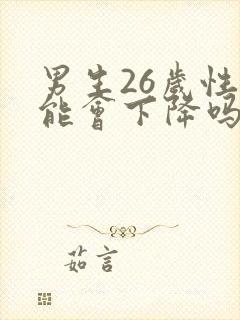 男生26歲性
能會下降吗
茹言